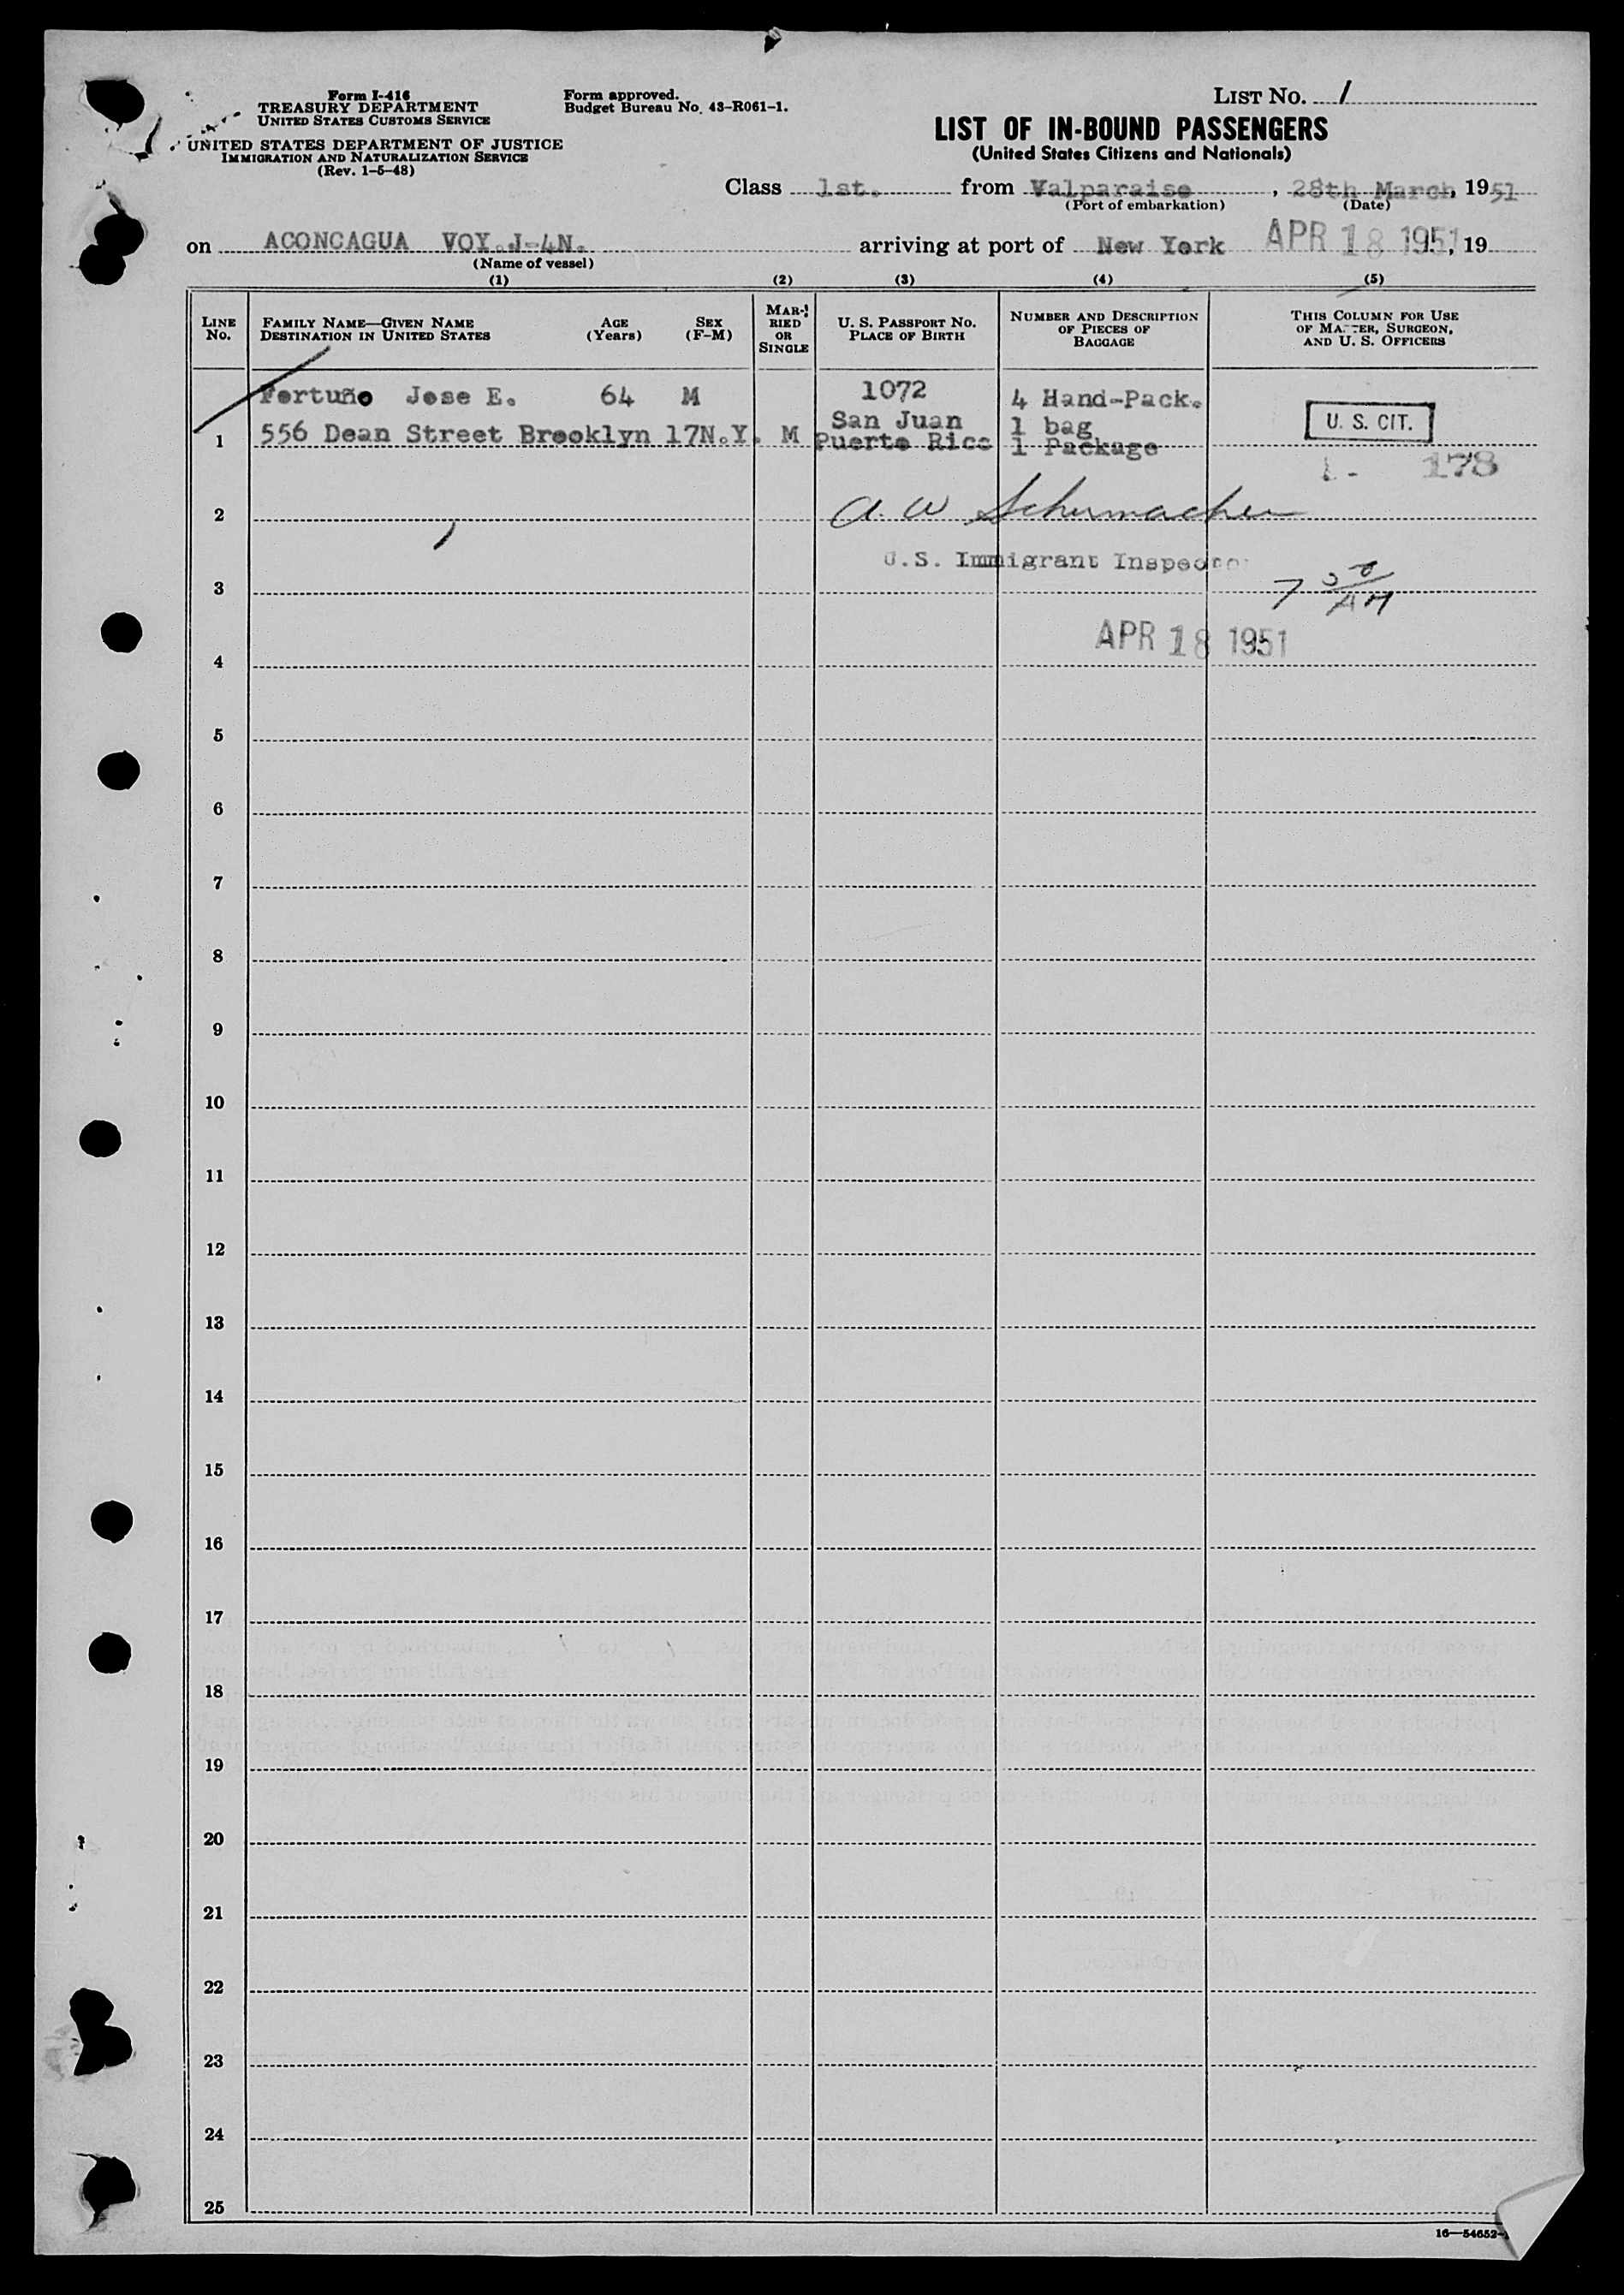 Form I-416
TREASURY DEPARTMENT
UNITED STATES CUSTOMS SERVICE
UNITED STATES DEPARTMENT OF JUSTICE
IMMIGRATION AND NATURALIZATION SERVICE
(Rev. 1-5-48)
Form approved.
Budget Bureau No. 43-R061-1.
LIST No. 1
LIST OF IN-BOUND PASSENGERS
(United States Citizens and Nationals)
Class 1st. from Valparaiso, 28th March, 1951
(Port of embarkation) (Date)
on ACONCAGUA VOY. J-4N. arriving at port of New York APR 18 1951, 19
(Name of vessel)
(1) (2) (3) (4) (5)
LINE No.
FAMILY NAME—GIVEN NAME
DESTINATION IN UNITED STATES
AGE (Years)
SEX (F-M)
MARRIED OR SINGLE
U. S. PASSPORT NO.
PLACE OF BIRTH
NUMBER AND DESCRIPTION
OF PIECES OF
BAGGAGE
THIS COLUMN FOR USE
OF MASTER, SURGEON,
AND U. S. OFFICERS
Fortuño Jose E. 64 M 1072 4 Hand-Pack.
1 556 Dean Street Brooklyn 17N.Y. M San Juan Puerto Rico 1 bag 1 Package U. S. CIT.
1 - 178
2 A. W Schumacher
U.S. Immigrant Inspector
3 7 AM
APR 18 1951
4
5
6
7
8
9
10
11
12
13
14
15
16
17
18
19
20
21
22
23
24
25
16—54652-